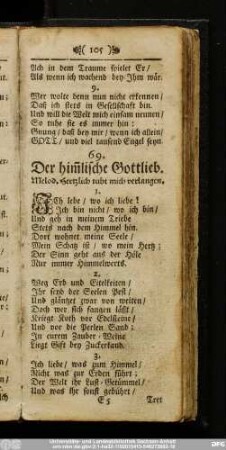 ( 105 )
Ach in dem Traume spielet Er/
Als wenn ich wachend bey Jhm wär.
9.
Wer wolte denn nun nicht erkennen/
Daß ich stets in Gesellschaft bin.
Und will die Welt mich einsam nennen/
So nuhe sie es immer hin:
Gnung/ daß bey mir/ wenn ich allein/
GOTT/ und viel tausend Engel seyn.
69.
Der him̃lische Gottlieb.
Melod. Hertzlich tuht mich verlangen.
1.
JCh lebe/ wo ich liebe!
Jch bin nicht/ wo ich bin/
Und geh in meinem Triebe
Stets nach dem Himmel hin.
Dort wohnet meine Seele/
Mein Schatz ist/ wo mein Hertz:
Der Sinn geht aus der Höle
Nur immer Himmelwerts.
2.
Weg Erd und Eitelkeiten/
Jhr seyd der Seelen Pest/
Und gläntzet zwar von weiten/
Doch wer sich fangen läßt/
Kriegt Koth vor Edelsteine/
Und vor die Perlen Sand:
Jn eurem Zauber-Weine
Liegt Gift bey Zuckerkand.
3.
Jch liebe/ was zum Himmel/
Nicht was zur Erden führt;
Der Welt ihr Lust-Getümmel/
Und was ihr sonst gebührt/
E 5 Tret